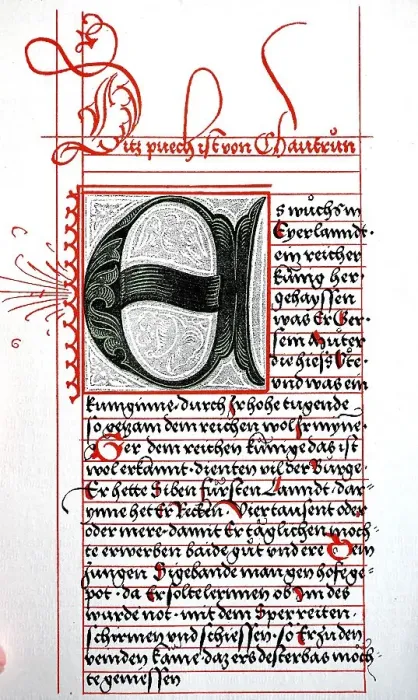 Ditz puech ist von Chautrůn
Es wůchs in
Eyerlanndt·
ein reicher
kůnig her·
gehayssen
was Er Ger·
sein Můter
die hiess Ůte·
vnd was ein
kuniginne· durch Ir hohe tugende
so gezam dem reichen wol Ir mynne·
Ger dem reichen kůnige das ist
wol erkannt· dienten vil der Bůrge·
Er hette Siben fůrsten Lanndt· dar=
ynne het Er Recken· Viertausent oder
oder mere· damit Er tåglichen moch=
te erwerben baide gůt vnd ere Dem
jungen Sigebande man gen hofe ge=
pot· da Er solte lernen ob Im des
wurde not· mit dem Sper reiten·
schirmen vnd schiessen· so Er zu den
veinden kåme· daz ers desterbas möch=
te geniessen